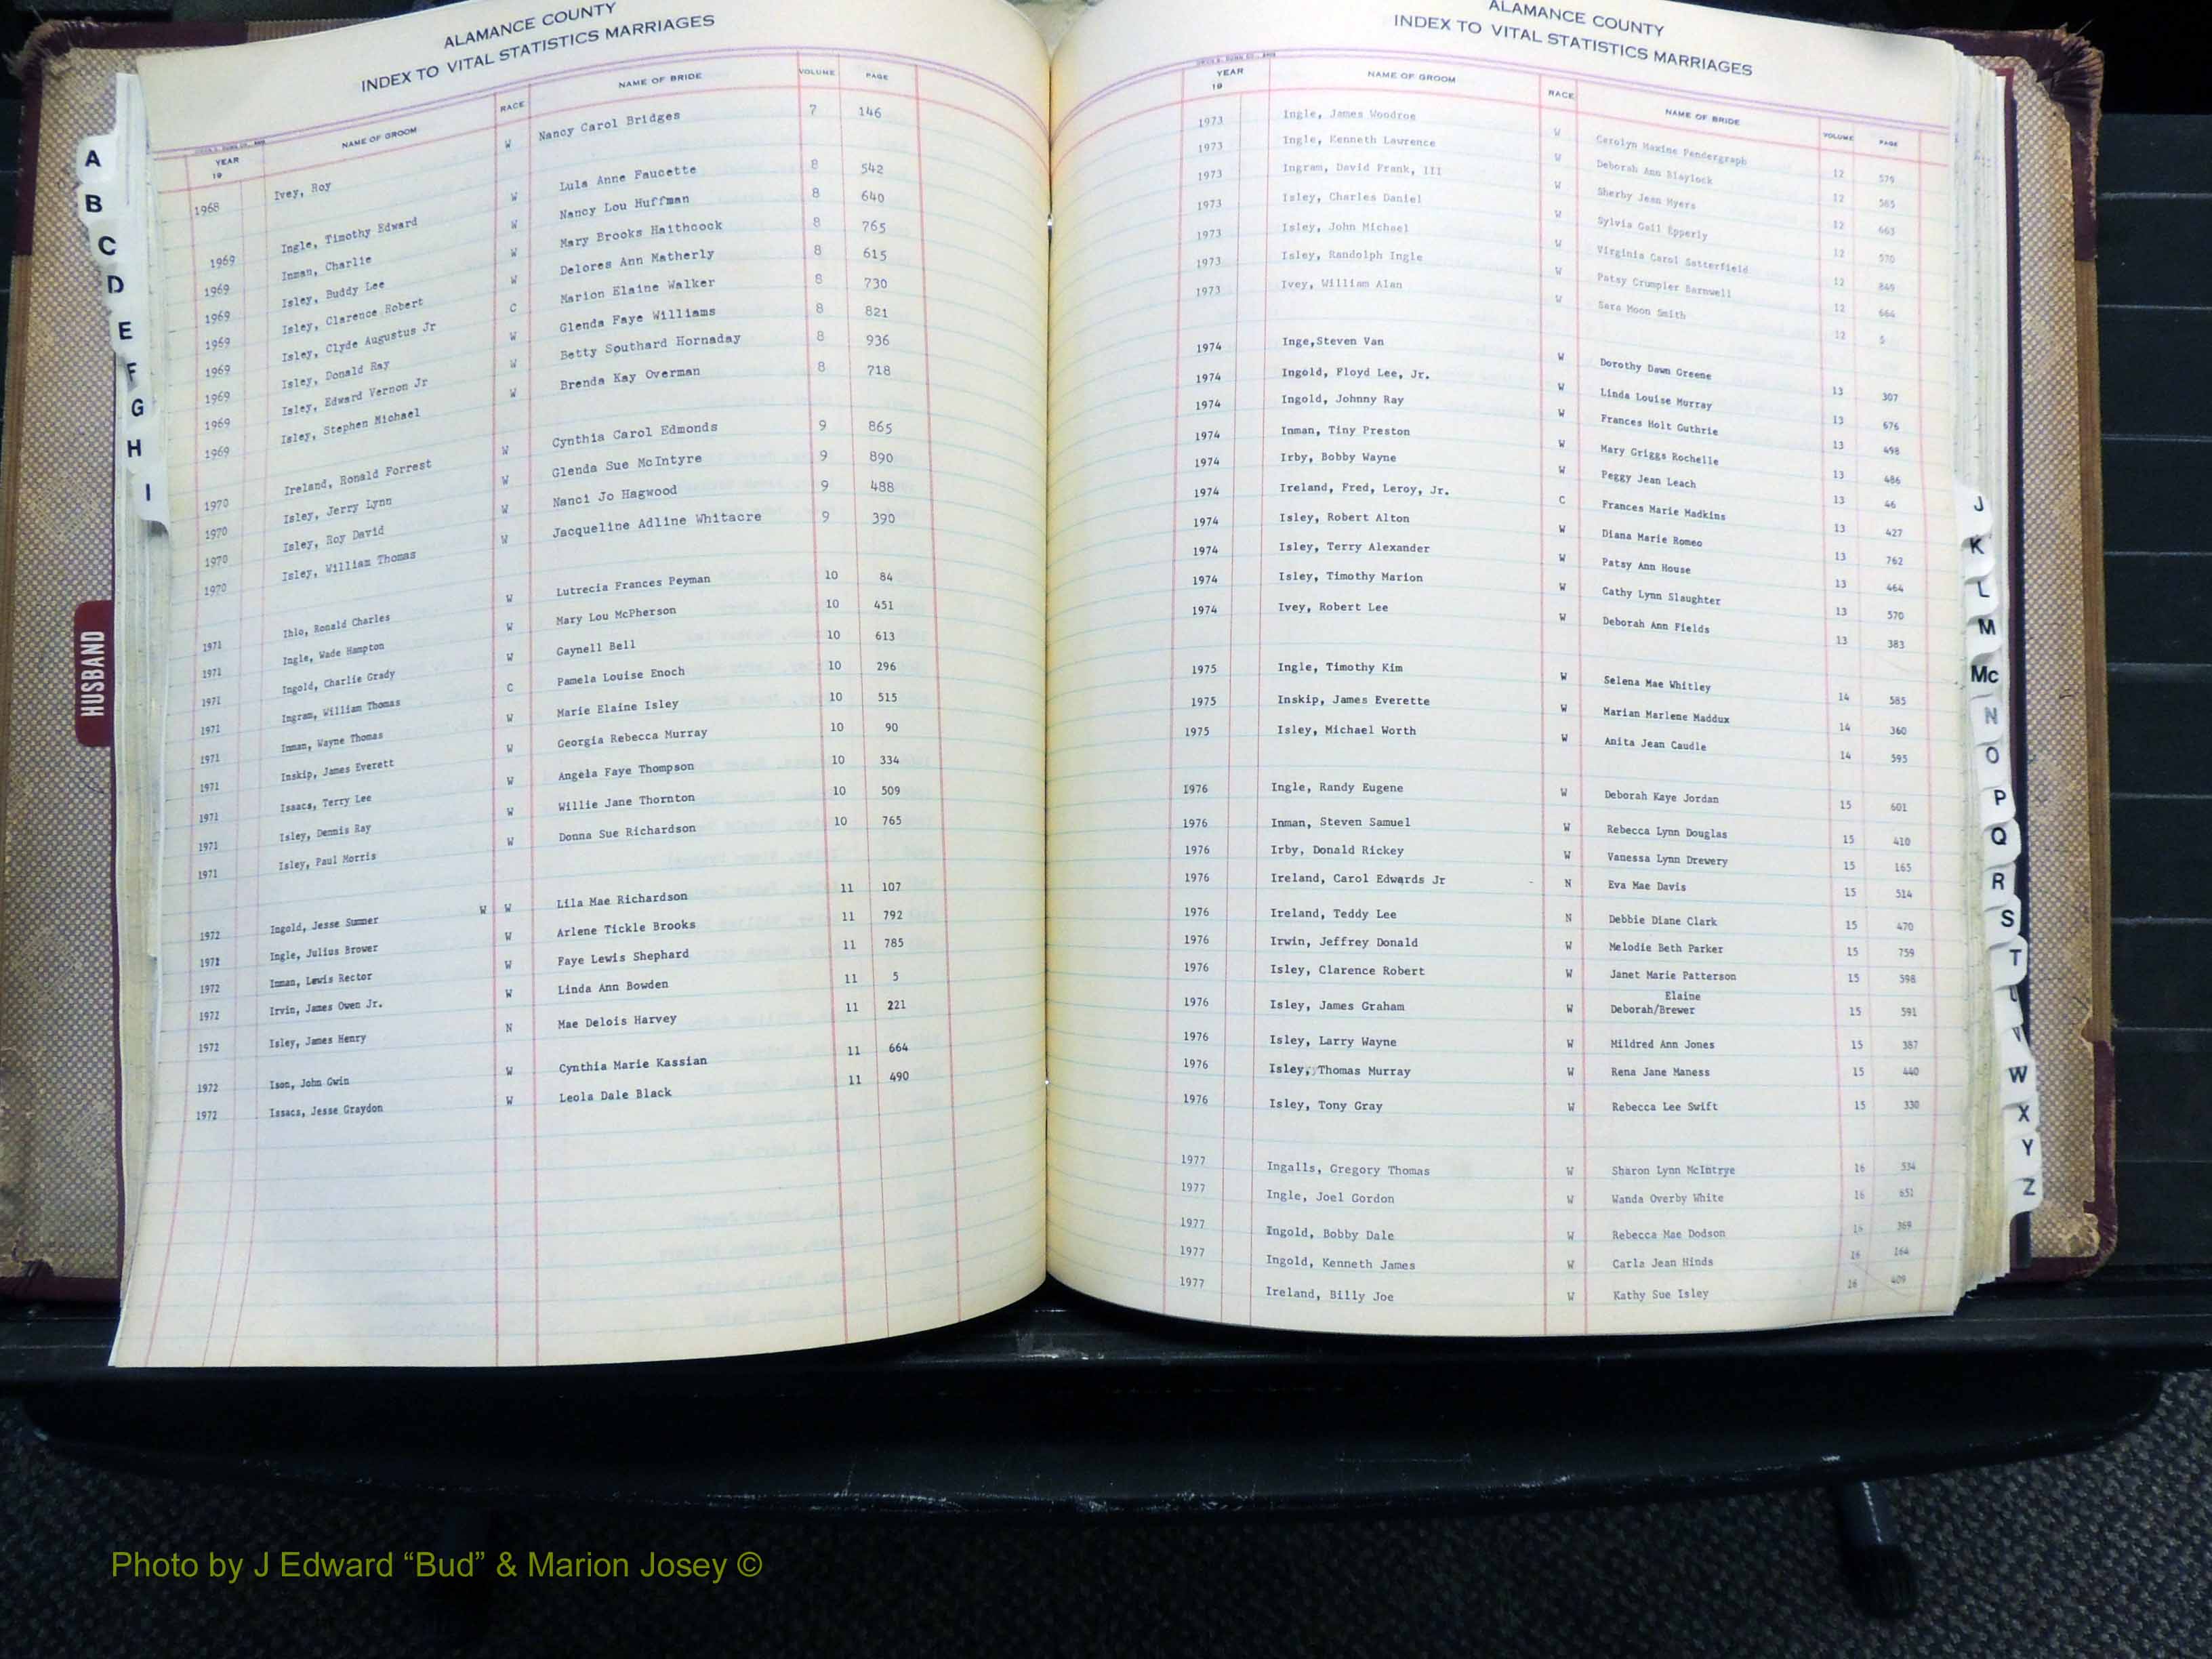 ALAMANCE COUNTY
INDEX TO VITAL STATISTICS MARRIAGES
YEAR 19 NAME OF GROOM RACE NAME OF BRIDE VOLUME PAGE
1968 Ivey, Roy W Nancy Carol Bridges 7 146
1969 Ingle, Timothy Edward W Lula Anne Faucette 8 542
1969 Inman, Charlie W Nancy Lou Huffman 8 640
1969 Isley, Buddy Lee W Mary Brooks Haithcock 8 765
1969 Isley, Clarence Robert W Delores Ann Matherly 8 615
1969 Isley, Clyde Augustus Jr C Marion Elaine Walker 8 730
1969 Isley, Donald Ray W Glenda Faye Williams 8 821
1969 Isley, Edward Vernon Jr W Betty Southard Hornaday 8 936
1969 Isley, Stephen Michael W Brenda Kay Overman 8 718
1970 Ireland, Ronald Forrest W Cynthia Carol Edmonds 9 865
1970 Isley, Jerry Lynn W Glenda Sue McIntyre 9 890
1970 Isley, Roy David W Nanci Jo Hagwood 9 488
1970 Isley, William Thomas W Jacqueline Adline Whitacre 9 390
1971 Ihlo, Ronald Charles W Lutrecia Frances Peyman 10 84
1971 Ingle, Wade Hampton W Mary Lou McPherson 10 451
1971 Ingold, Charlie Grady W Gaynell Bell 10 613
1971 Ingram, William Thomas C Pamela Louise Enoch 10 296
1971 Inman, Wayne Thomas W Marie Elaine Isley 10 515
1971 Inskip, James Everett W Georgia Rebecca Murray 10 90
1971 Isaacs, Terry Lee W Angela Faye Thompson 10 334
1971 Isley, Dennis Ray W Willie Jane Thornton 10 509
1971 Isley, Paul Morris W Donna Sue Richardson 10 765
1972 Ingold, Jesse Sumner W W Lila Mae Richardson 11 107
1972 Ingle, Julius Brower W Arlene Tickle Brooks 11 792
1972 Inman, Lewis Rector W Faye Lewis Shephard 11 785
1972 Irvin, James Owen Jr. W Linda Ann Bowden 11 5
1972 Isley, James Henry N Mae Delois Harvey 11 221
1972 Ison, John Gwin W Cynthia Marie Kassian 11 664
1972 Issacs, Jesse Graydon W Leola Dale Black 11 490
A
B
C
D
E
F
G
H
I
HUSBAND
ALAMANCE COUNTY
INDEX TO VITAL STATISTICS MARRIAGES
YEAR 19 NAME OF GROOM RACE NAME OF BRIDE VOLUME PAGE
1973 Ingle, James Woodroe W Carolyn Maxine Pendergraph 12 575
1973 Ingle, Kenneth Lawrence W Deborah Ann Blaylock 12 585
1973 Ingram, David Frank, III W Sherby Jean Myers 12 663
1973 Isley, Charles Daniel W Sylvia Gail Epperly 12 570
1973 Isley, John Michael W Virginia Carol Satterfield 12 849
1973 Isley, Randolph Ingle W Patsy Crumpler Barnwell 12 664
1973 Ivey, William Alan W Sara Moon Smith 12 5
1974 Inge,Steven Van W Dorothy Dawn Greene 13 307
1974 Ingold, Floyd Lee, Jr. W Linda Louise Murray 13 676
1974 Ingold, Johnny Ray W Frances Holt Guthrie 13 498
1974 Inman, Tiny Preston W Mary Griggs Rochelle 13 486
1974 Irby, Bobby Wayne W Peggy Jean Leach 13 46
1974 Ireland, Fred, Leroy, Jr. C Frances Marie Madkins 13 427
1974 Isley, Robert Alton W Diana Marie Romeo 13 762
1974 Isley, Terry Alexander W Patsy Ann House 13 464
1974 Isley, Timothy Marion W Cathy Lynn Slaughter 13 570
1974 Ivey, Robert Lee W Deborah Ann Fields 13 383
1975 Ingle, Timothy Kim W Selena Mae Whitley 14 585
1975 Inskip, James Everette W Marian Marlene Maddux 14 360
1975 Isley, Michael Worth W Anita Jean Caudle 14 595
1976 Ingle, Randy Eugene W Deborah Kaye Jordan 15 601
1976 Inman, Steven Samuel W Rebecca Lynn Douglas 15 410
1976 Irby, Donald Rickey W Vanessa Lynn Drewery 15 165
1976 Ireland, Carol Edwards Jr - N Eva Mae Davis 15 514
1976 Ireland, Teddy Lee N Debbie Diane Clark 15 470
1976 Irwin, Jeffrey Donald W Melodie Beth Parker 15 759
1976 Isley, Clarence Robert W Janet Marie Patterson 15 598
Elaine
1976 Isley, James Graham W Deborah/Brewer 15 591
1976 Isley, Larry Wayne W Mildred Ann Jones 15 387
1976 Isley, Thomas Murray W Rena Jane Maness 15 440
1976 Isley, Tony Gray W Rebecca Lee Swift 15 330
1977 Ingalls, Gregory Thomas W Sharon Lynn McIntrye 16 534
1977 Ingle, Joel Gordon W Wanda Overby White 16 651
1977 Ingold, Bobby Dale W Rebecca Mae Dodson 16 369
1977 Ingold, Kenneth James W Carla Jean Hinds 16 164
1977 Ireland, Billy Joe W Kathy Sue Isley 16 409
J
K
L
M
Mc
N
O
P
Q
R
S
T
V
W
X
Y
Z
Photo by J Edward “Bud” & Marion Josey ©